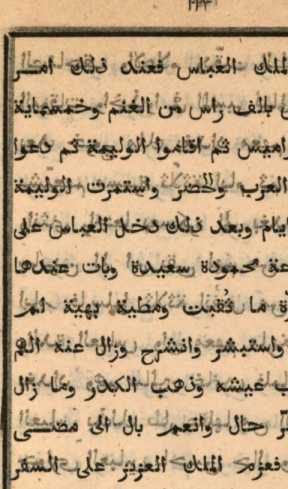 ٢٢٣
الملك العباس فعند ذلك امر
بالف راس من الغنم وخمسماية
واميس ثم اقاموا الوليمة ثم دعوا
العرب والحضر واستمرت الوليمة
ايام وبعد ذلك دخل العباس على
محمودة سعيدة وبات عندها
ما ثقبت ومطية بهية لم
واستبشر وانشرح وزال عنه الهم
عيشه وذهب الكدر وما زال
حال وانعم بال الى مضى
فعزم الملك العزيز على السفر